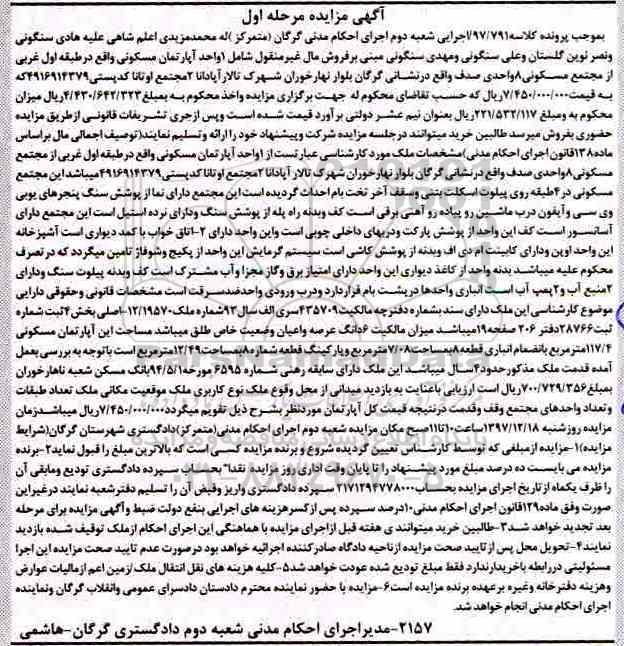 آگهی مزایده مرحله اول
بموجب پرونده کلاسه۹۷/۷۹۱اجرایی شعبه دوم اجرای احکام مدنی گرگان (متمرکز )له محمدمزیدی اعلم شاهی علیه هادی سنگونی
ونصر نوین گلستان وعلی سنگونی ومهدی سنگونی مبنی برفروش مال غیرمنقول شامل ۱واحد آپارتمان مسکونی واقع درطبقه اول غربی
از مجتمع مسکونی۸واحدی صدف واقع درنشانی گرگان بلوار نهارخوران شهرک تالار آپادانا ۲مجتمع اوتانا کدپستی۴۹۱۶۹۱۴۳۷۹که
به قیمت۷/۴۵۰/۰۰۰/۰۰۰ریال که حسب تقاضای محکوم له جهت برگزاری مزایده واخذ محکوم به بمبلغ۴/۴۳۰/۶۴۲/۳۲۳ریال میزان
محکوم به ومبلغ ۲۲۱/۵۳۲/۱۱۷ریال بعنوان نیم عشر دولتی برآورد قیمت شده است وپس ازجری تشریفات قانونی ازطریق مزایده
حضوری بفروش میرسد طالبین خرید میتوانند درجلسه مزایده شرکت وپیشنهاد خود را ارائه وتسلیم نمایند(توصیف اجمالی مال براساس
ماده۱۳۸قانون اجرای احکام مدنی)مشخصات ملک مورد کارشناسی عبارتست از ۱واحد آپارتمان مسکونی واقع درطبقه اول غربی از مجتمع
مسکونی۸واحدی صدف واقع درنشانی گرگان بلوار نهارخوران شهرک تالار آپادانا ۲مجتمع اوتانا کدپستی۴۹۱۶۹۱۴۳۷۹میباشد این مجتمع
مسکونی در۴طبقه روی پیلوت اسکلت بتنی وسقف آخر تخت بام احداث گردیده است این مجتمع دارای نما از پوشش سنگ پنجرهای یوپی
وی سی وآیفون درب ماشین رو پیاده رو آهنی برقی است کف وبدنه راه پله از پوشش سنگ ودارای نرده استیل است این مجتمع دارای
آسانسور است کف این واحد از پوشش پارکت ودربهای داخلی چوبی است واین واحد دارای ۲-اتاق خواب با کمد دیواری است آشپزخانه
این واحد اوپن ودارای کابینت ام دی اف وبدنه از پوشش کاشی است سیستم گرمایش این واحد از پکیج وشوفاژ تامین میگردد که در تصرف
محکوم علیه میباشد بدنه واحد از کاغذ دیواری این واحد دارای امتیاز برق وگاز مجزا وآب مشترک است کف وبدنه پیلوت سنگ ودارای
۲منبع آب و۲پمپ آب است انباری واحدها درپشت بام قراردارد ودرب ورودی واحدضدسرقت است مشخصات قانونی وحقوقی دارایی
موضوع کارشناسی این ملک دارای سند بشماره دفترچه مالکیت۴۳۵۷۰۹سری الف سال۹۳شماره ملک۱۲/۱۹۵۷۰-اصلی بخش۴ثبت شماره
ثبت۲۸۷۶۶دفتر ۲۰۶ صفحه۱۹میباشد میزان مالکیت ۶دانگ عرصه واعیان وضعیت خاص طلق میباشد مساحت این آپارتمان مسکونی
۱۱۷/۴مترمربع بانضمام انباری قطعه۸بمساحت۷/۰۸مترمربع وپارکینگ قطعه شماره۸بمساحت۱۲/۴۹مترمربع است باتوجه به بررسی بعمل
آمده قدمت ملک مذکورحدود۴سال میباشد این ملک دارای سابقه رهنی شماره ۶۵۹۵ مورخه۹۴/۵/۱بانک مسکن شعبه ناهارخوران
بمبلغ۷۰۰/۷۲۹/۳۵۶ریال است ارزیابی باعنایت به بازدید میدانی از محل وقوع ملک نوع کاربری ملک موقعیت مکانی ملک تعداد طبقات
وتعداد واحدهای مجتمع وقف وقدمت درنتیجه قیمت کل آپارتمان موردنظر بشرح ذیل تقویم میگردد۷/۴۵۰/۰۰۰/۰۰۰ریال میباشدزمان
مزایده روزشنبه ۱۳۹۷/۱۲/۱۸ساعت۱۰تا۱۱صبح مکان مزایده شعبه دوم اجرای احکام مدنی(متمرکز)دادگستری شهرستان گرگان(شرایط
مزایده)۱-مزایده ازمبلغی که توسط کارشناس تعیین گردیده شروع و برنده مزایده کسی است که بالاترین مبلغ را قبول نماید۲-برنده
مزایده می بایست ده درصد مبلغ مورد پیشنهاد را تا پایان وقت اداری روز مزایده نقدا" بحساب سپرده دادگستری تودیع ومابقی آن
را ظرف یکماه ازتاریخ اجرای مزایده بحساب۲۱۷۱۲۹۴۷۷۸۰۰۰ سپرده دادگستری واریز وفیش آن را تسلیم دفترشعبه نمایند درغیراین
صورت وفق ماده۱۲۹قانون اجرای احکام مدنی ۱۰درصد سپرده پس ازکسرهزینه های اجرایی بنفع دولت ضبط وآگهی مزایده برای مرحله
بعد تجدید خواهد شد۳-طالبین خرید میتوانند ی هفته قبل ازاجرای مزایده با هماهنگی این اجرای احکام ازملک توقیف شده بازدید
نمایند۴-تحویل محل پس ازتایید صحت مزایده ازناحیه دادگاه صادرکننده اجرائیه خواهد بود درصورت عدم تایید صحت مزایده این اجرا
مسئولیتی دررابطه باخریدارندارد فقط مبلغ تودیع شده عودت خواهد شد۵-کلیه هزینه های نقل انتقال ملک ازمین اعم ازمالیات عوارض
وهزینه دفترخانه وغیره برعهده برنده مزایده است۶-مزایده با حضور نماینده محترم دادستان دادسرای عمومی وانقلاب گرگان ونماینده
اجرای احکام مدنی انجام خواهد شد.
۲۱۵۷-مدیراجرای احکام مدنی شعبه دوم دادگستری گرگان-هاشمی